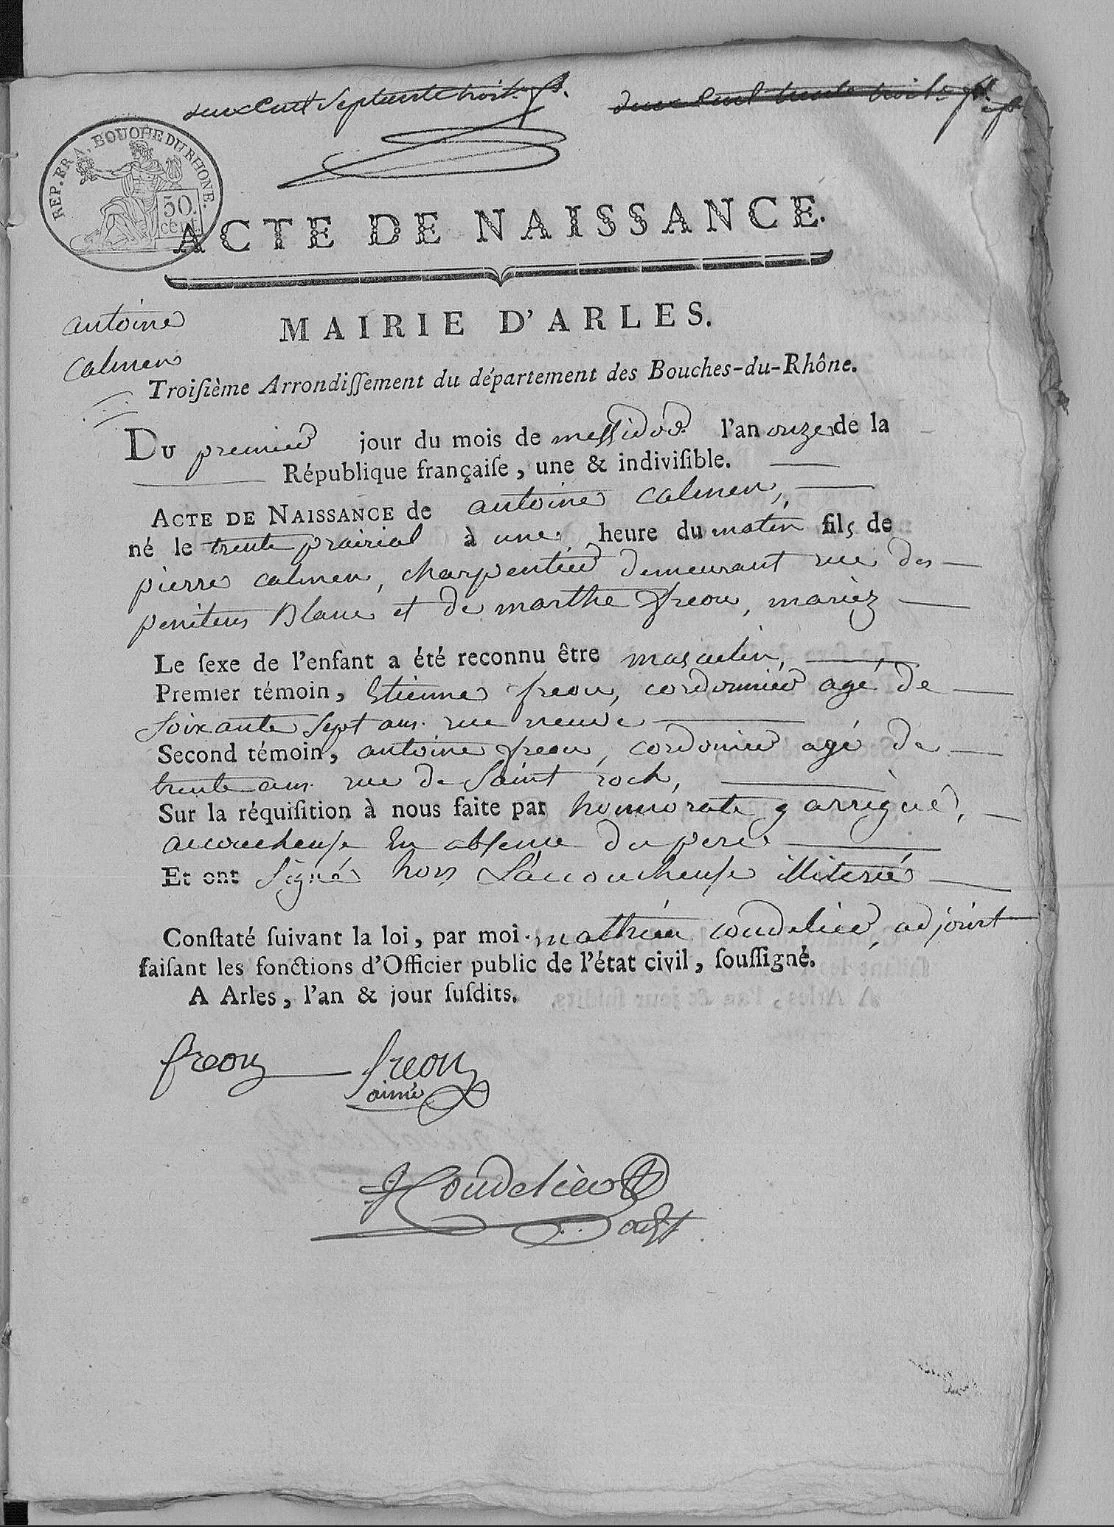 deux Cent Septente trois
deux Cent trente trois
REP. FRA. BOUCHE DU RHONE.
50.
cent.
ACTE DE NAISSANCE.
antoine
calmen
MAIRIE D'ARLES.
Troiſième Arrondiſſement du département des Bouches-du-Rhône.
DU premier jour du mois de messidor l'an onze de la
République françaiſe, une & indiviſible.
ACTE DE NAISSANCE de antoine calmen,
né le trente prairial à une heure du matin fils de
pierre calmen, charpentier demeurant rue des
penitens Blanc et de marthe freou, mariez
Le ſexe de l'enfant a été reconnu être masculin,
Premier témoin, Etienne freou, cordonnier agé de
soixante sept ans. rue neuve
Second témoin, antoine freou, cordonier agé de
trente ans. rue de Saint roch,
Sur la réquiſition à nous faite par honnorate garrigue,
accoucheuse En absence du pere
Et ont signé hors L'accoucheuse illiterée
Conſtaté ſuivant la loi, par moi mathieu coudelier, adjoint
faiſant les fonctions d'Officier public de l'état civil, ſouſſigné.
A Arles, l'an & jour ſuſdits.
freou freou
aimé
Coudelier
adjt